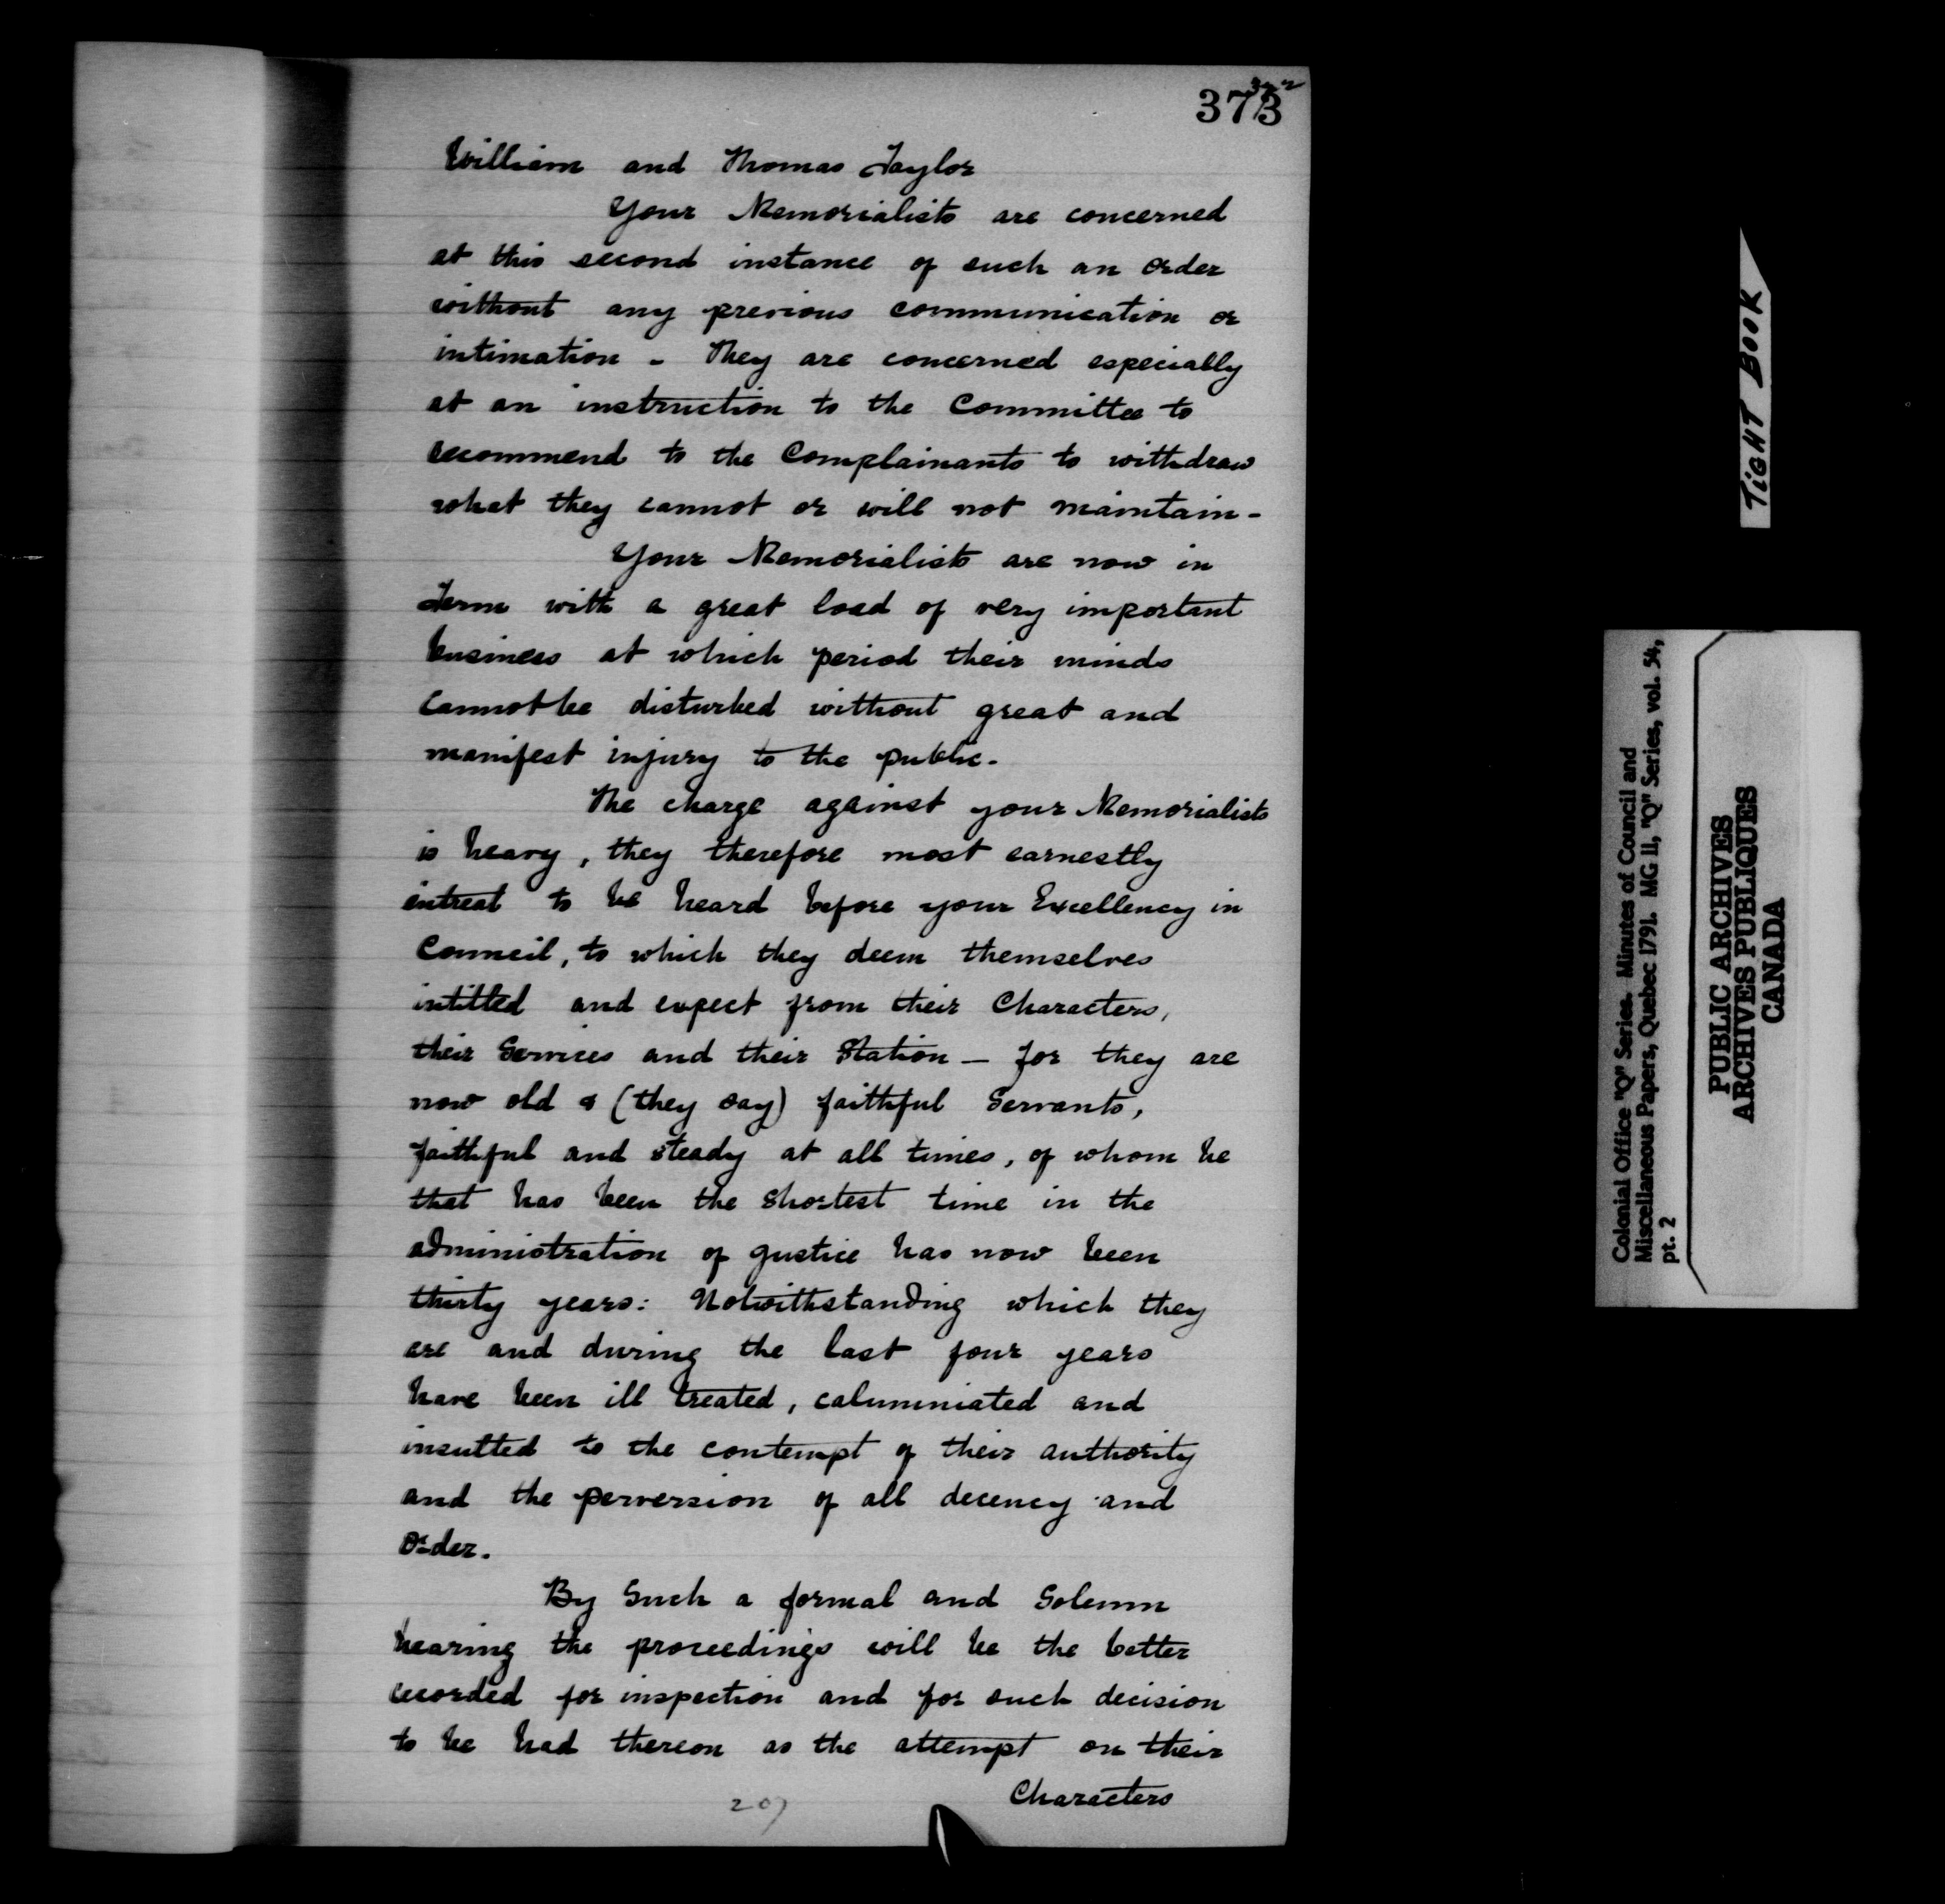 373
372
William and Thomas Taylor
Your Memorialists are concerned
at this second instance of such an order
without any previous communication or
intimation - They are concerned especially
at an instruction to the Committee to
recommend to the Complainants to withdraw
what they cannot or will not maintain -
Your Memorialists are now in
Term with a great load of very important
business at which period their minds
cannot be disturbed without great and
manifest injury to the public.
The charge against your Memorialists
is heavy, they therefore most earnestly
intreat to be heard before your Excellency in
Council, to which they deem themselves
intitled and expect from their Characters,
their Services and their Station - for they are
now old & (they say) faithful Servants,
faithful and steady at all times, of whom he
that has been the shortest time in the
administration of justice has now been
thirty years: Notwithstanding which they
are and during the last four years
have been ill treated, calumniated and
insulted to the contempt of their authority
and the perversion of all decency and
Order.
By Such a formal and Solemn
hearing the proceedings will be the better
recorded for inspection and for such decision
to be had thereon as the attempt on their
Characters
207
TIGHT BOOK
Colonial Office "Q" Series. Minutes of Council and
Miscellaneous Papers, Quebec 1791. MG 11, "Q" Series, vol. 54,
pt. 2
PUBLIC ARCHIVES
ARCHIVES PUBLIQUES
CANADA